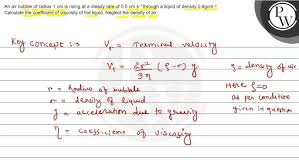 An air bubble of radius 1 cm is rising at a steady rate of 0.5 cm s⁻¹ through a liquid of density 0.8 gcm⁻³.
Calculate the coefficient of viscosity of the liquid. Neglect the density of air.
PW
Key Concept :→ Vₜ = Terminal velocity
Vₜ = 2r² / 9η (ρ - σ) g
ρ = density of air
r = Radius of bubble
Here ρ = 0
σ = density of liquid
as per condition
g = acceleration due to gravity
given in question
η = coefficient of viscosity